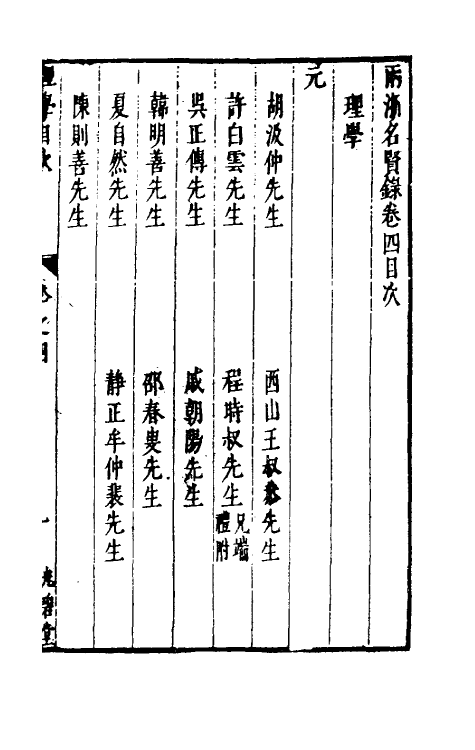 兩浙名賢錄卷四目次
理學
元
胡汲仲先生
西山王叔㳟先生
許白雲先生
程時叔先生兄端禮附
吳正傳先生
戚朝陽先生
韓明善先生
邵春叟先生
夏自然先生
靜正牟仲裴先生
陳則善先生
理學目次
卷之四
一
光碧堂